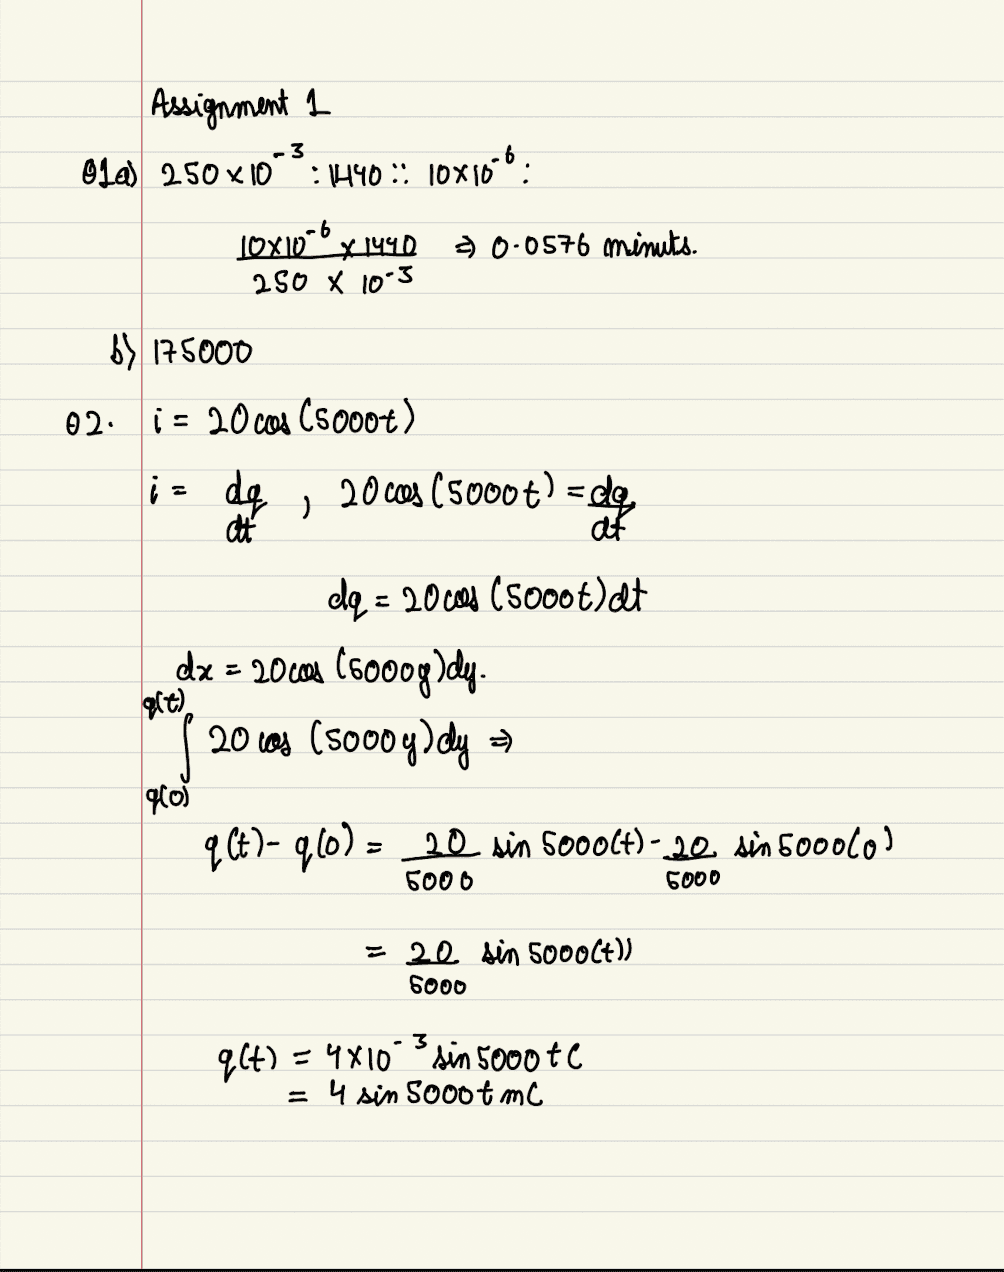 Assignment 1
Q1a) 250 × 10⁻³ : 1440 :: 10×10⁻⁶ :
10×10⁻⁶ × 1440 / 250 × 10⁻³ ⇒ 0.0576 minuts.
b) 175000
Q2. i = 20 cos (5000t)
i = dq/dt , 20 cos (5000t) = dq/dt
dq = 20 cos (5000t) dt
dx = 20 cos (5000y) dy.
∫_{q(0)}^{q(t)} 20 cos (5000y) dy ⇒
q(t) - q(0) = 20/5000 sin 5000(t) - 20/5000 sin 5000(0)
= 20/5000 sin 5000(t))
q(t) = 4×10⁻³ sin 5000t C
= 4 sin 5000t mC